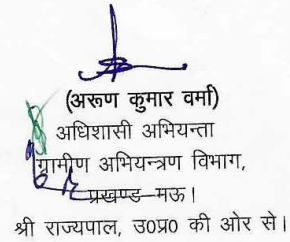 (अरूण कुमार वर्मा)
अधिशासी अभियन्ता
ग्रामीण अभियन्त्रण विभाग,
प्रखण्ड-मऊ।
श्री राज्यपाल, उ0प्र0 की ओर से।